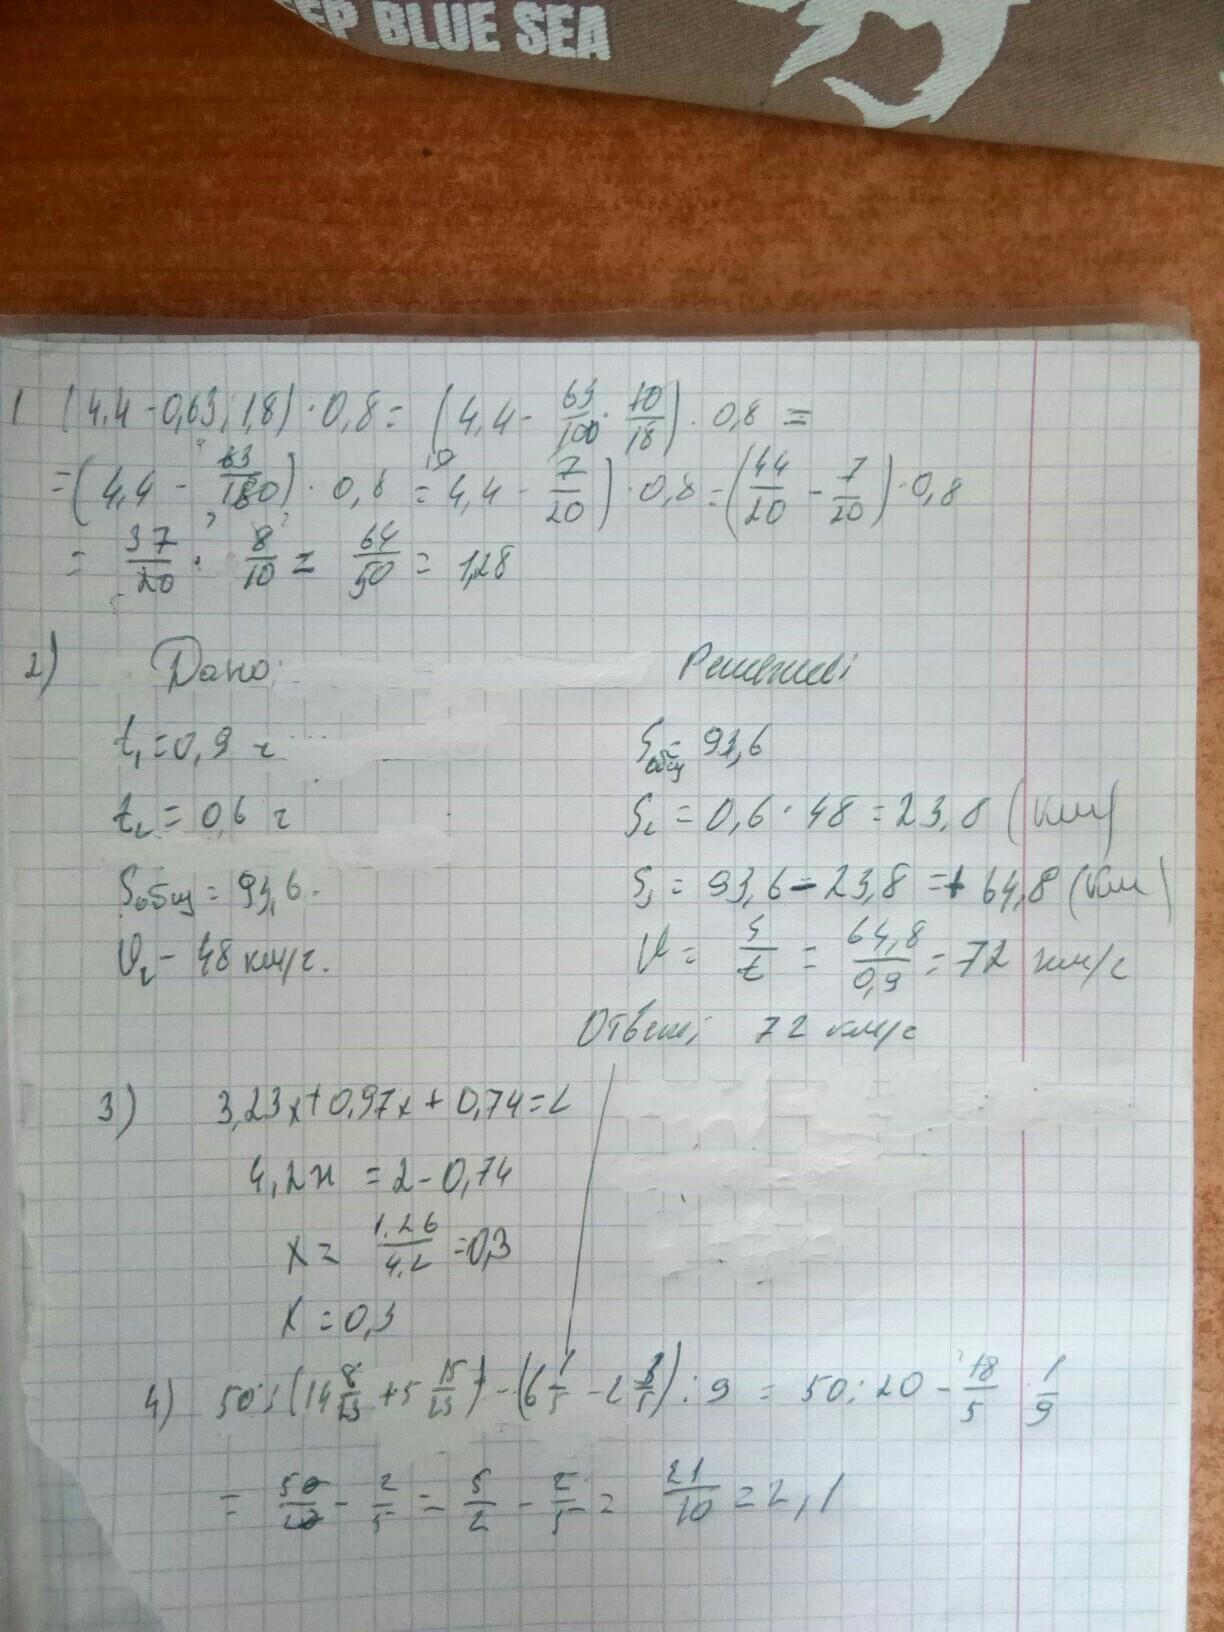 EEP BLUE SEA
1 (4,4 - 0,63 : 1,8) · 0,8 = (4,4 - 63/100 · 10/18) · 0,8 =
= (4,4 - 63/180) · 0,8 = 4,4 - 7/20) · 0,8 = (44/20 - 7/20) · 0,8
= 37/20 · 8/10 = 64/50 = 1,28
2) Дано: Решение:
t₁ = 0,9 ч Sобщ = 93,6
t₂ = 0,6 ч S₂ = 0,6 · 48 = 23,8 (км)
Sобщ = 93,6. S₁ = 93,6 - 23,8 = 64,8 (км)
V₂ - 48 км/ч. V = S/t = 64,8/0,9 = 72 км/ч
Ответ: 72 км/ч
3) 3,23x + 0,97x + 0,74 = 2
4,2x = 2 - 0,74
x = 1.26/4.2 = 0,3
x = 0,3
4) 50 : (14 8/23 + 5 15/23) - (6 1/5 - 2 3/5) : 9 = 50 : 20 - 18/5 · 1/9
= 50/20 - 2/5 = 5/2 - 2/5 = 21/10 = 2,1